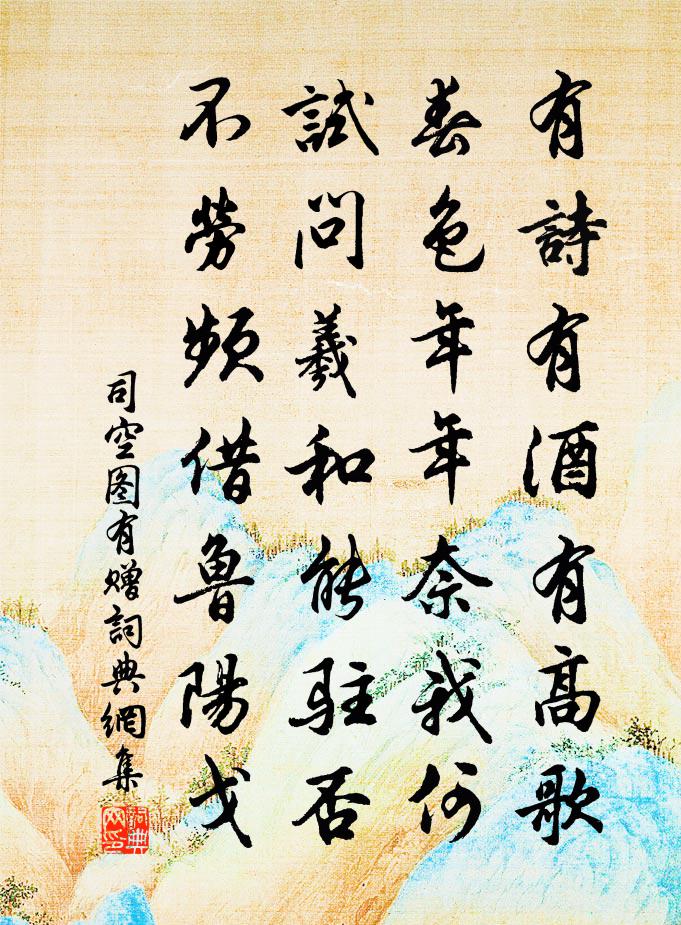 有詩有酒有高歌
春色年年奈我何
試問羲和能駐否
不勞頻借魯陽戈
司空图有赠詞典網集
詞典
网印